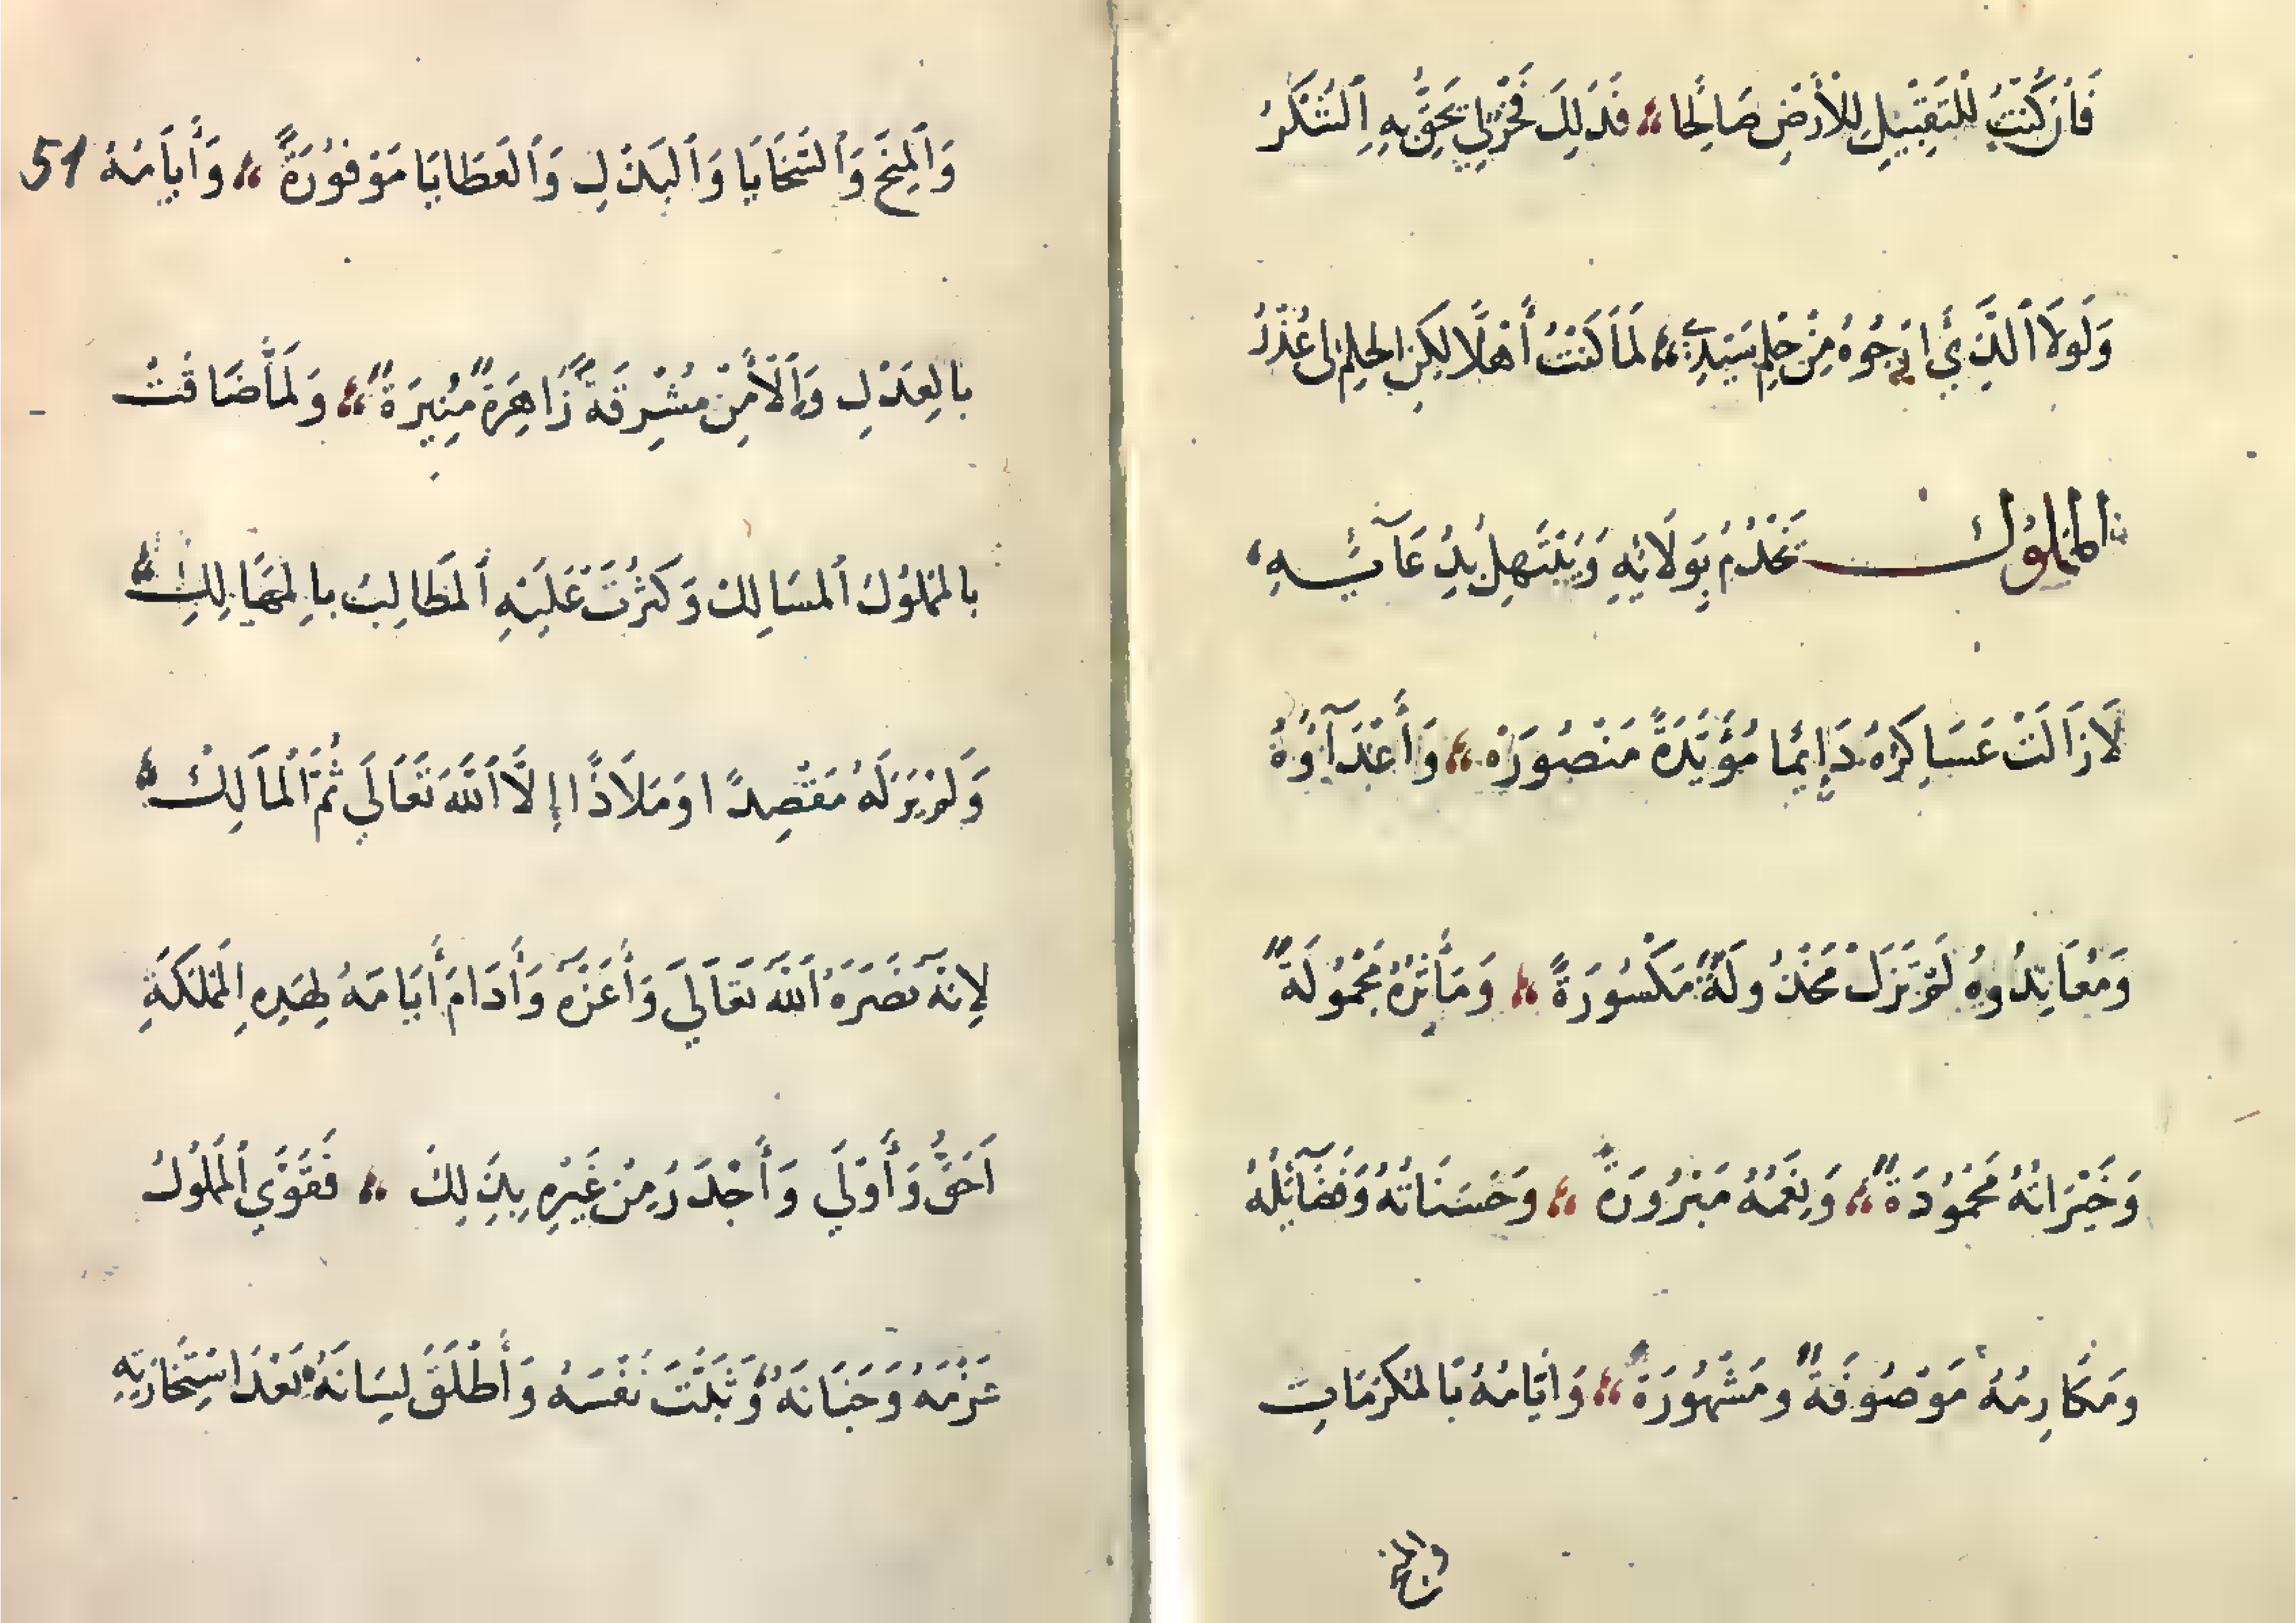 فَاِنْ كُنْتُ لِلتَّقْبِيْلِ لِلْأَرْضِ صَالِحًا فَذَلِكَ فَخْرٌ لِي يَحِقُّ بِهِ اَلشُّكْرُ
وَلَوْلَا اَلَّذِيْ أَرْجُوهُ مِنْ حِلْمِ سَيِّدِيْ لَمَا كُنْتُ أَهْلًا لَكِنِ الحِلْمُ لِى عُذْرُ
المَمْلُوْكُ يَخْدُمُ بِوَلَائِهِ وَيَبْتَهِلُ بِدُعَآئِهِ
لَا زَالَتْ عَسَاكِرُهُ دَائِمًا مُؤَيَّدَةً مَنْصُورَةْ وَأَعْدَآؤُهُ
وَمُعَانِدُوهُ لَمْ تَزَلْ مَخْذُولَةً مَكْسُورَةً وَمَأْثَرُهُ مَحْمُولَةً
وَخَيْرَاتُهُ مَحْمُوْدَةً وَنِعَمُهُ مَبْرُورَةً وَحَسَنَاتُهُ وَفَضَآئِلُهُ
ومَكَارِمُهُ مَوْصُوفَةً ومَشْهُوْرَةً وَأَيَّامُهُ بَالمَكْرَمَاتِ
والمنح
وَاَلْمِنَحَ وَاَلسَّخَايَا وَاَلْبَذْلِ وَاَلْعَطَايَا مَوْفُوْرَةً وَأَيَّامُهُ 51
بِالْعَدْلِ وَاَلْأَمْنِ مُشْرِقَةً زَاهِرَةً مُنِيرَةً وَلَمَّا ضَاقَتْ
بالمَمْلُوْكِ اَلمَسَالِكُ وَكَثُرَتْ عَلَيْهِ اَلمَطَالِبُ بِالْمَهَالِكِ
وَلَمْ يَرَ لَهُ مَقْصِدًا وَمَلَاذًا إِلَّا اَللَّهَ تَعَالَي ثُمَّ اَلْمَالِكْ
لِاِنَّهُ نَصَرَهُ اَللَّه تَعَالَي وَأَعَزَّهُ وَأَدَامَ أَيَّامَهُ لِهَذِهِ اِلمَمْلَكَةِ
اَحَقُّ وَأَوْلَي وَأَجْدَرُ مِنْ غَيْرِهِ بِذَلِكَ فَقَوَّي اَلمَمْلُوْكُ
عَزْمَهُ وَجَنَانَهُ وَثَبَّتَ نَفْسَهُ وَأَطْلَقَ لِسَانَهُ بَعْدَ اسْتِخَارَتِهِ